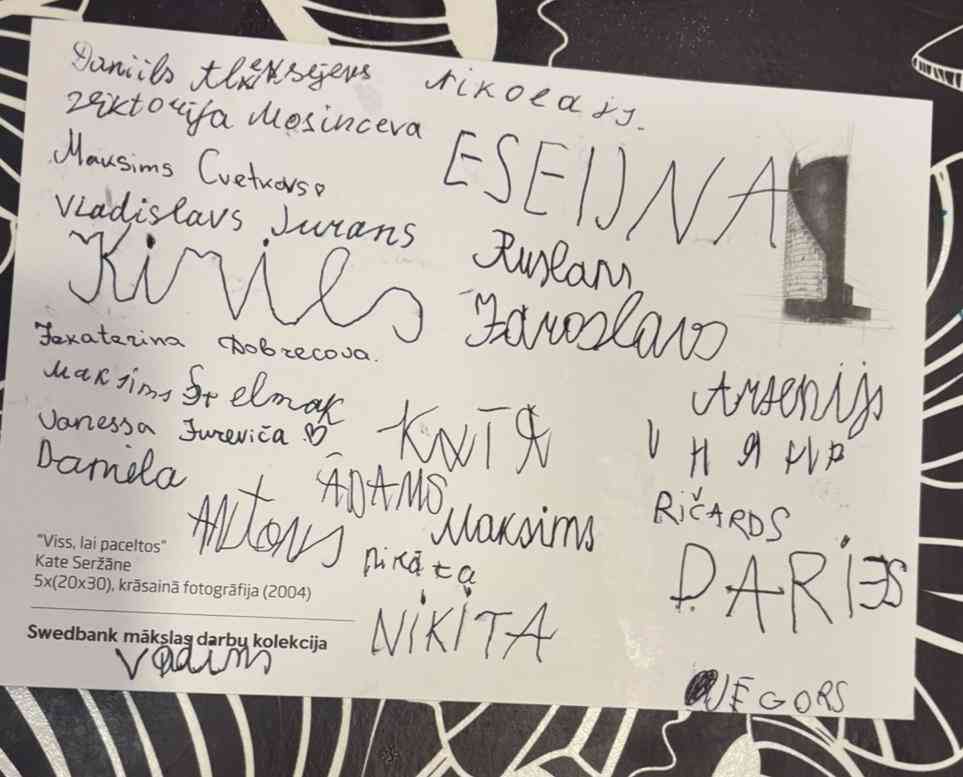 Daniils Aleksejevs
Nikolajs.
Viktorija Mosinceva
Maksims Cvetkovs
ESEIJNA
Vladislavs Jurans
Ruslans
Kirils
Jaroslavs
Jekaterina Dobrecova.
Arsenijs
Maksims Strelmak
Vanessa Jureviča
ĀDAMS
Daniela
RiČARDS
Antons
Maksims
"Viss, lai paceltos"
Kate Seržāne
5x(20x30), krāsainā fotogrāfija (2004)
Nikāta
DARiES
NiKiTA
Swedbank mākslas darbu kolekcija
Vadims
JEGORS